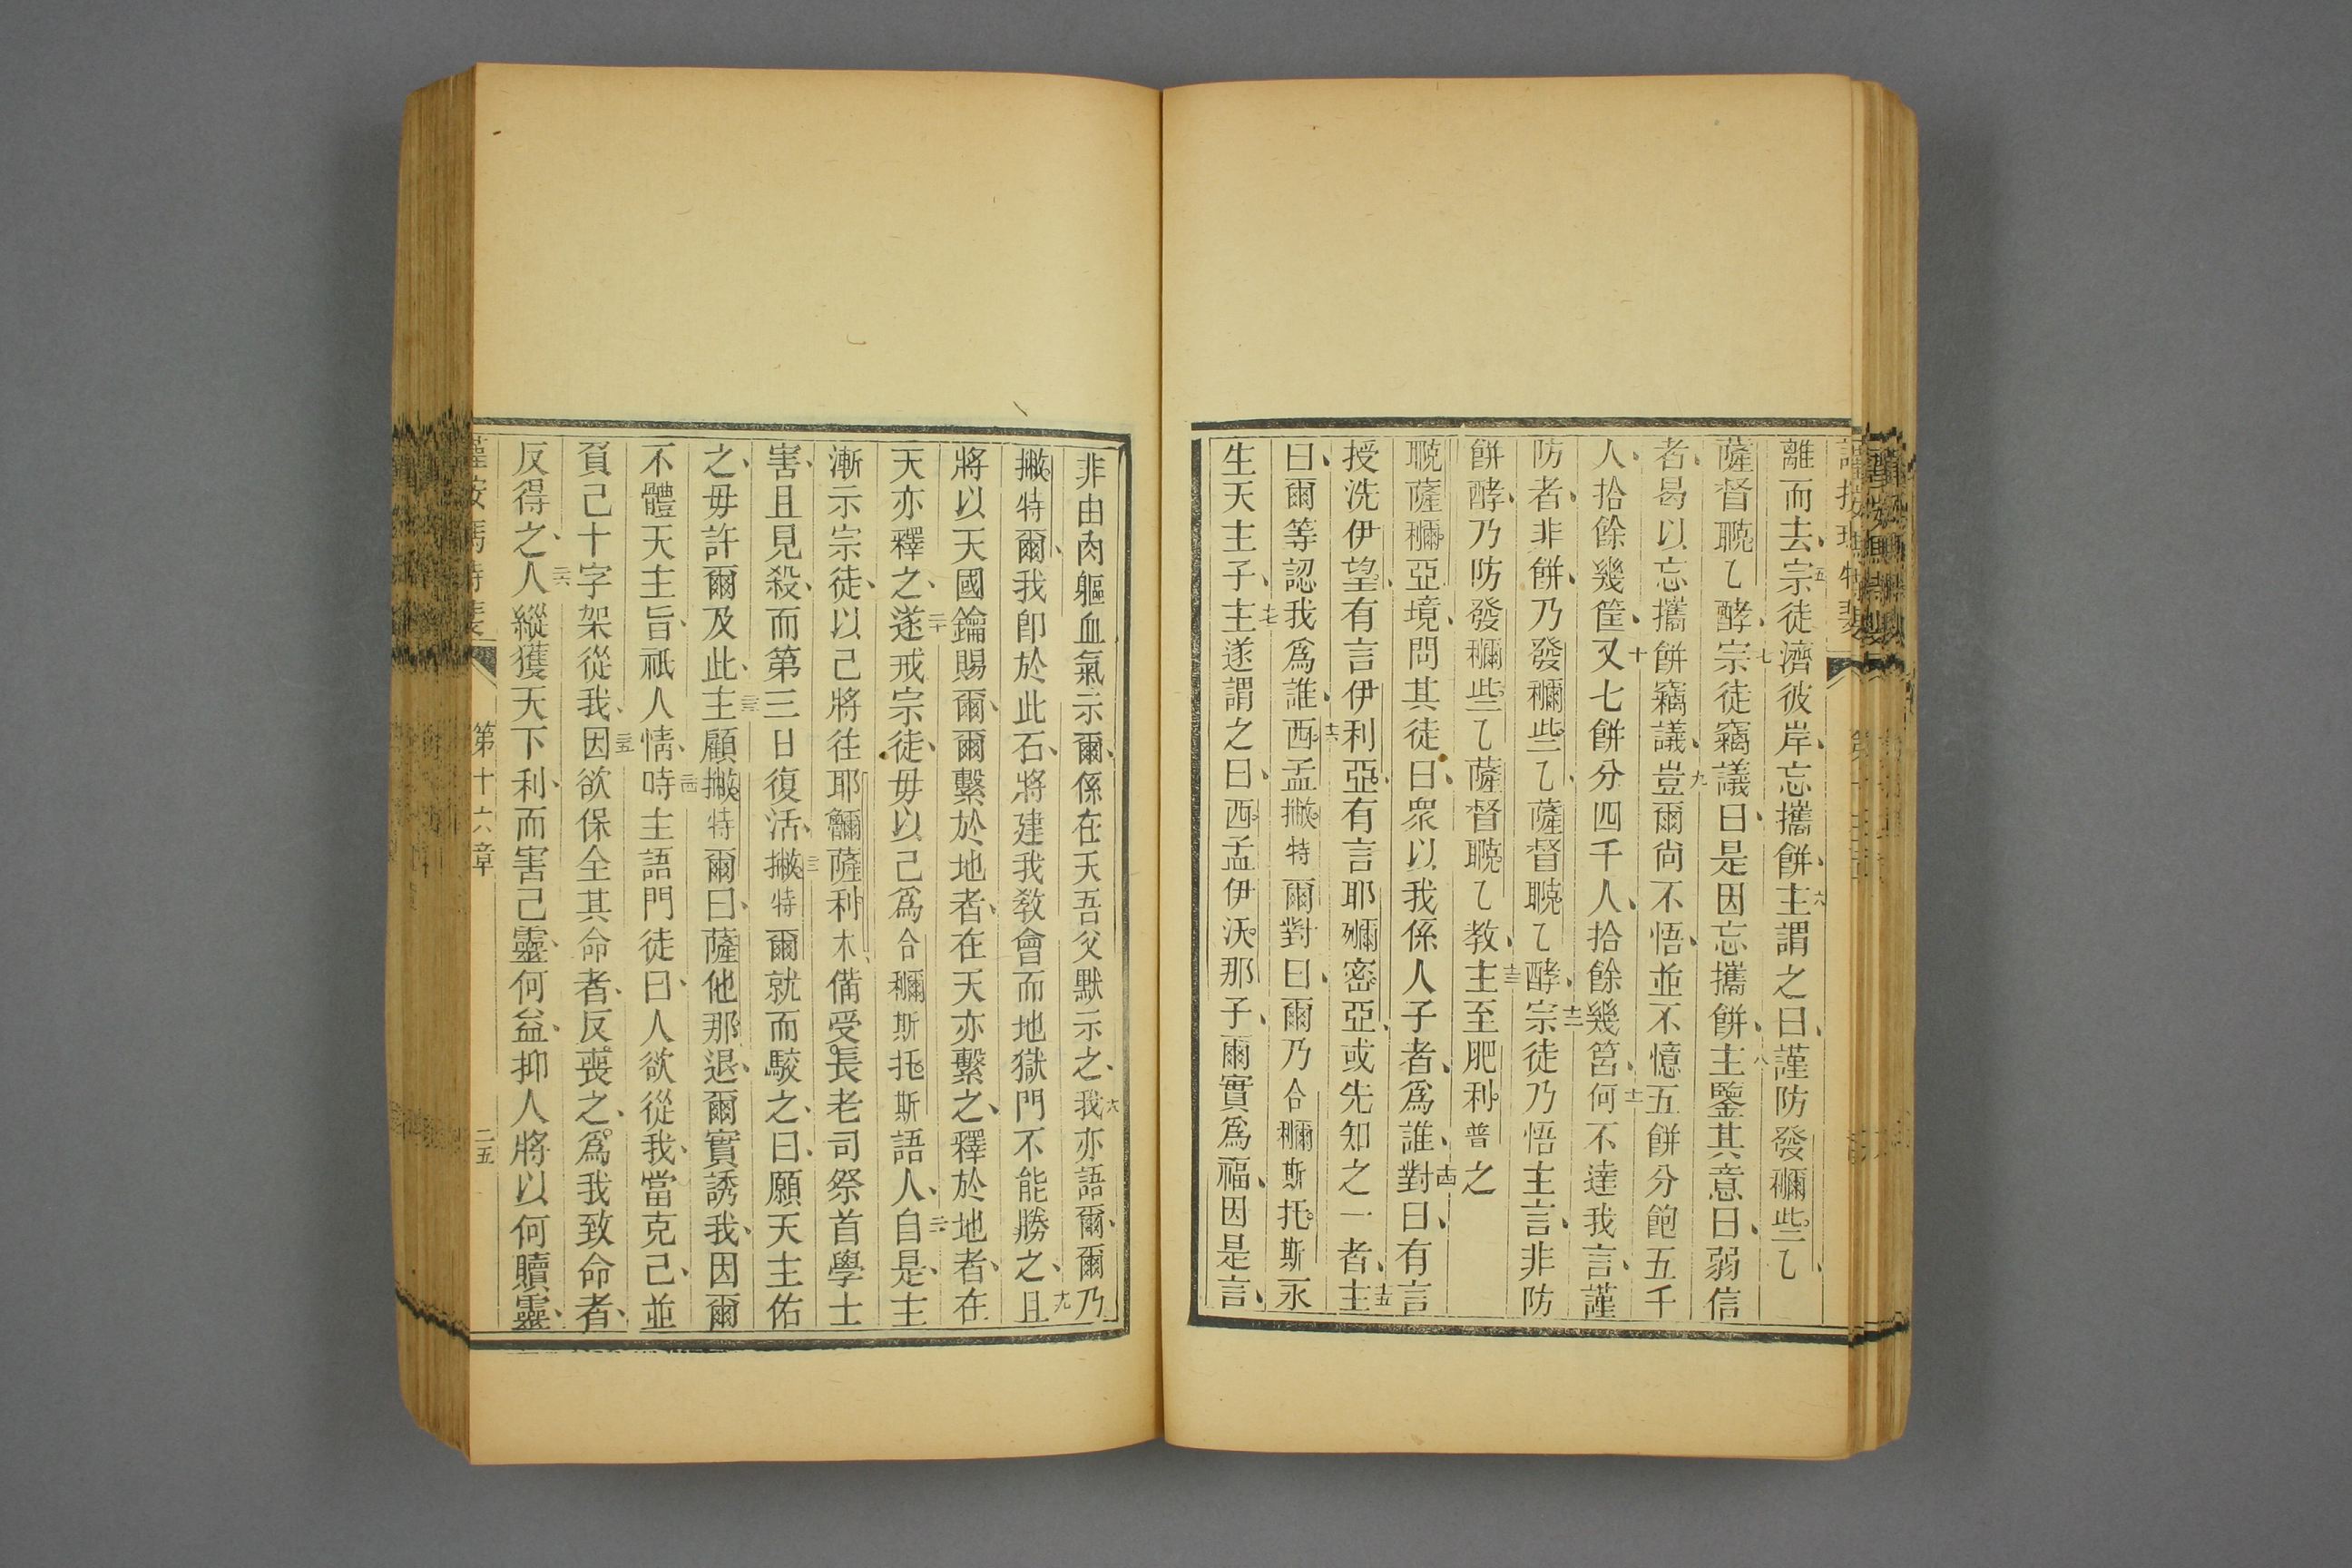 離而去、五宗徒濟彼岸、忘攜餅、六主謂之曰、謹防發穪些乙、
薩督䎳乙酵、七宗徒竊議曰、是因忘攜餅、八主鑒其意曰、弱信
者、曷以忘攜餅竊議、九豈爾尙不悟、並不憶五餅分飽五千
人、拾餘幾筐、十又七餅分四千人、拾餘幾筥、十一何不達我言、謹
防者、非餅、乃發穪些乙、薩督䎳乙酵、十二宗徒乃悟主言、非防
餅酵、乃防發穪些乙薩督䎳乙教、十三主至肥利普之
䎳薩穪亞境、問其徒曰、衆以我係人子者、爲誰、十四對曰、有言
授洗伊望、有言伊利亞、有言耶殢密亞、或先知之一者、十五主
曰、爾等認我爲誰、十六西孟撇特爾對曰、爾乃合穪斯托斯永
生天主子、十七主遂謂之曰、西孟伊沃那子、爾實爲福、因是言、
非由肉軀血氣示爾、係在天吾父默示之、六我亦語爾、爾乃
撇特爾、我卽於此石、將建我教會而地獄門不能勝之、十九且
將以天國鑰賜爾、爾繫於地者、在天亦繫之、釋於地者、在
天亦釋之、二十遂戒宗徒、毋以己爲合穪斯托斯語人、二一自是、主
漸示宗徒、以己將往耶薩利木、備受長老司祭首學士
害、且見殺、而第三日復活、二二撇特爾就而駮之、曰、願天主佑
之、毋許爾及此、二三主顧撇特爾曰、薩他那、退、爾實誘我、因爾
不體天主旨、祇人情、二四時主語門徒曰、人欲從我、當克己、並
負己十字架從我、二五因欲保全其命者、反喪之、爲我致命者、
反得之、二六人縱獲天下利、而害己靈、何益、抑人將以何贖靈、
第十六章
二五